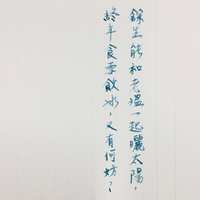 餘生能和老溫一起曬太陽，
終年食雪飲冰，又有何妨？